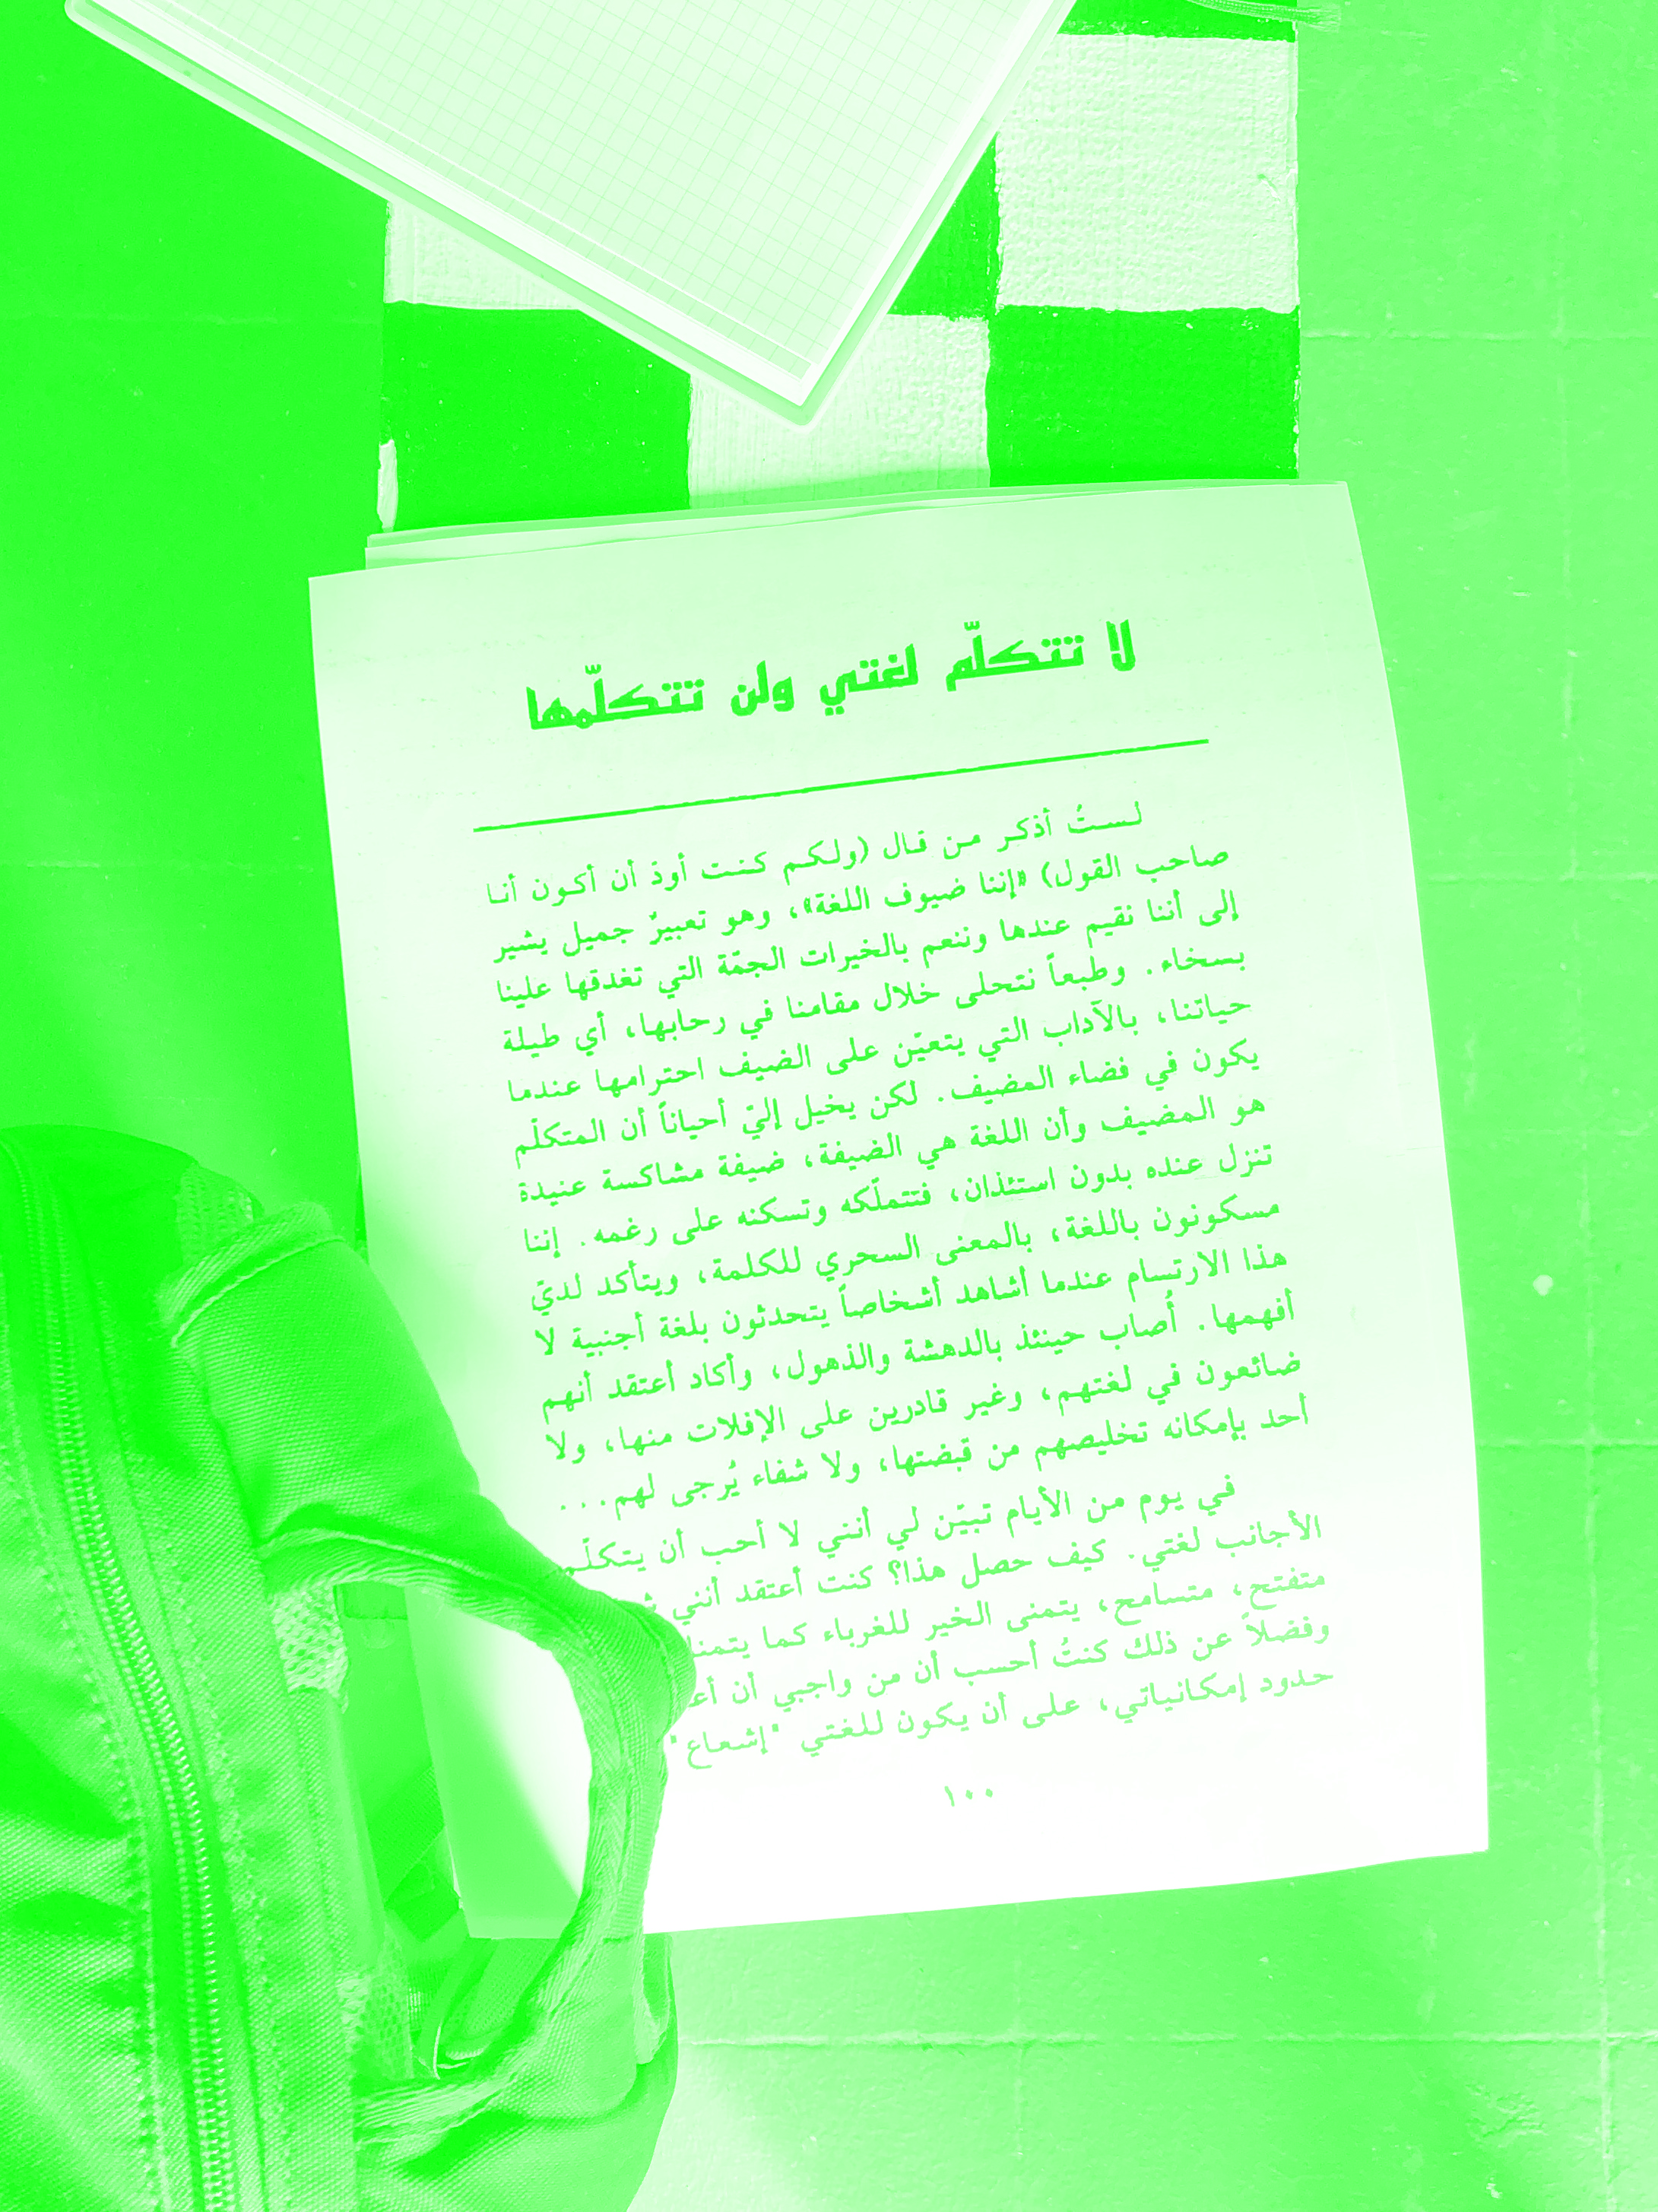 لا تتكلّم لغتي ولن تتكلّمها
لستُ أذكر من قال (ولكم كنت أودّ أن أكون أنا
صاحب القول) «إننا ضيوف اللغة»، وهو تعبيرٌ جميل يشير
إلى أننا نقيم عندها وننعم بالخيرات الجمّة التي تغدقها علينا
بسخاء. وطبعاً نتحلى خلال مقامنا في رحابها، أي طيلة
حياتنا، بالآداب التي يتعيّن على الضيف احترامها عندما
يكون في فضاء المضيف. لكن يخيل إليّ أحياناً أن المتكلّم
هو المضيف وأن اللغة هي الضيفة، ضيفة مشاكسة عنيدة
تنزل عنده بدون استئذان، فتتملّكه وتسكنه على رغمه. إننا
مسكونون باللغة، بالمعنى السحري للكلمة، ويتأكد لديّ
هذا الارتسام عندما أشاهد أشخاصاً يتحدثون بلغة أجنبية لا
أفهمها. أُصاب حينئذ بالدهشة والذهول، وأكاد أعتقد أنهم
ضائعون في لغتهم، وغير قادرين على الإفلات منها، ولا
أحد بإمكانه تخليصهم من قبضتها، ولا شفاء يُرجى لهم...
في يوم من الأيام تبيّن لي أنني لا أحب أن يتكلّم
الأجانب لغتي. كيف حصل هذا؟ كنت أعتقد أنني
متفتح، متسامح، يتمنى الخير للغرباء كما
وفضلاً عن ذلك كنتُ أحسب أن من واجبي أن
حدود إمكانياتي، على أن يكون للغتي "إشعاع"
١٠٠